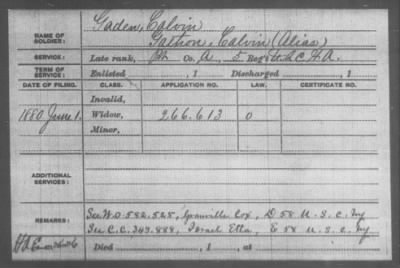 Gaden, Calvin
NAME OF SOLDIER:
Galhon, Calvin (Alias)
SERVICE: Late rank, Pvt Co. A, 5 Reg't U.S.C.H.A.
TERM OF SERVICE: Enlisted , 1 Discharged , 1
DATE OF FILING. CLASS. APPLICATION NO. LAW. CERTIFICATE NO.
Invalid,
1880 June 1. Widow, 266.613 0
Minor,
ADDITIONAL SERVICES:
See W.O. 582.528, Granville Cox, D 58 U.S.C. Inf
REMARKS: See C.C. 349.888, Israel Ella, E 58 U.S.C. Inf
Died , 1 , at